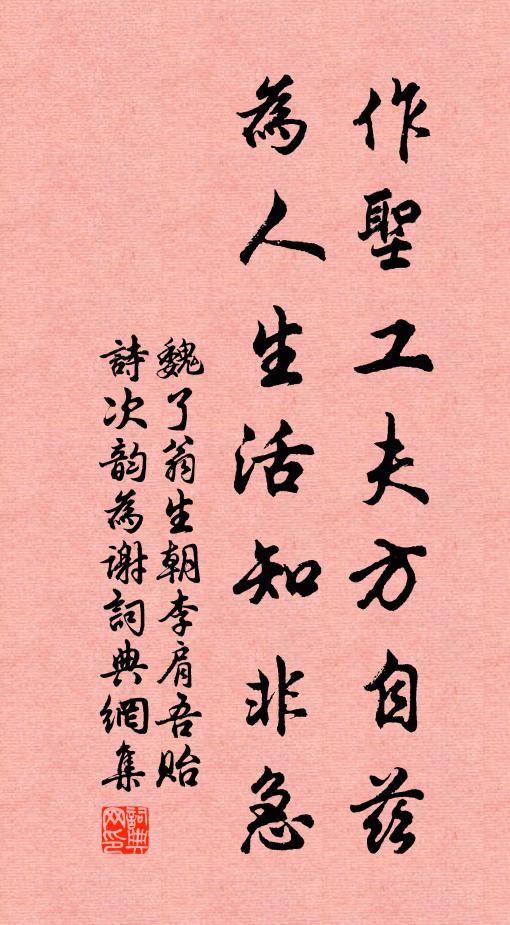 作聖工夫方自茲
為人生活知非急
魏了翁生朝李肩吾貽
詩次韵為谢詞典網集
詞典
网印